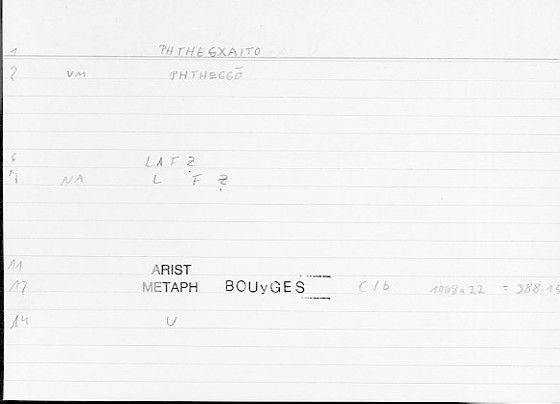 1 PHTHEGXAITO
2 VM PHTHEGGŌ
6 LAFẒ
7 NA L F Ẓ
11 ARIST
METAPH BOUyGES C/b 1008a22 = 388.15
14 V